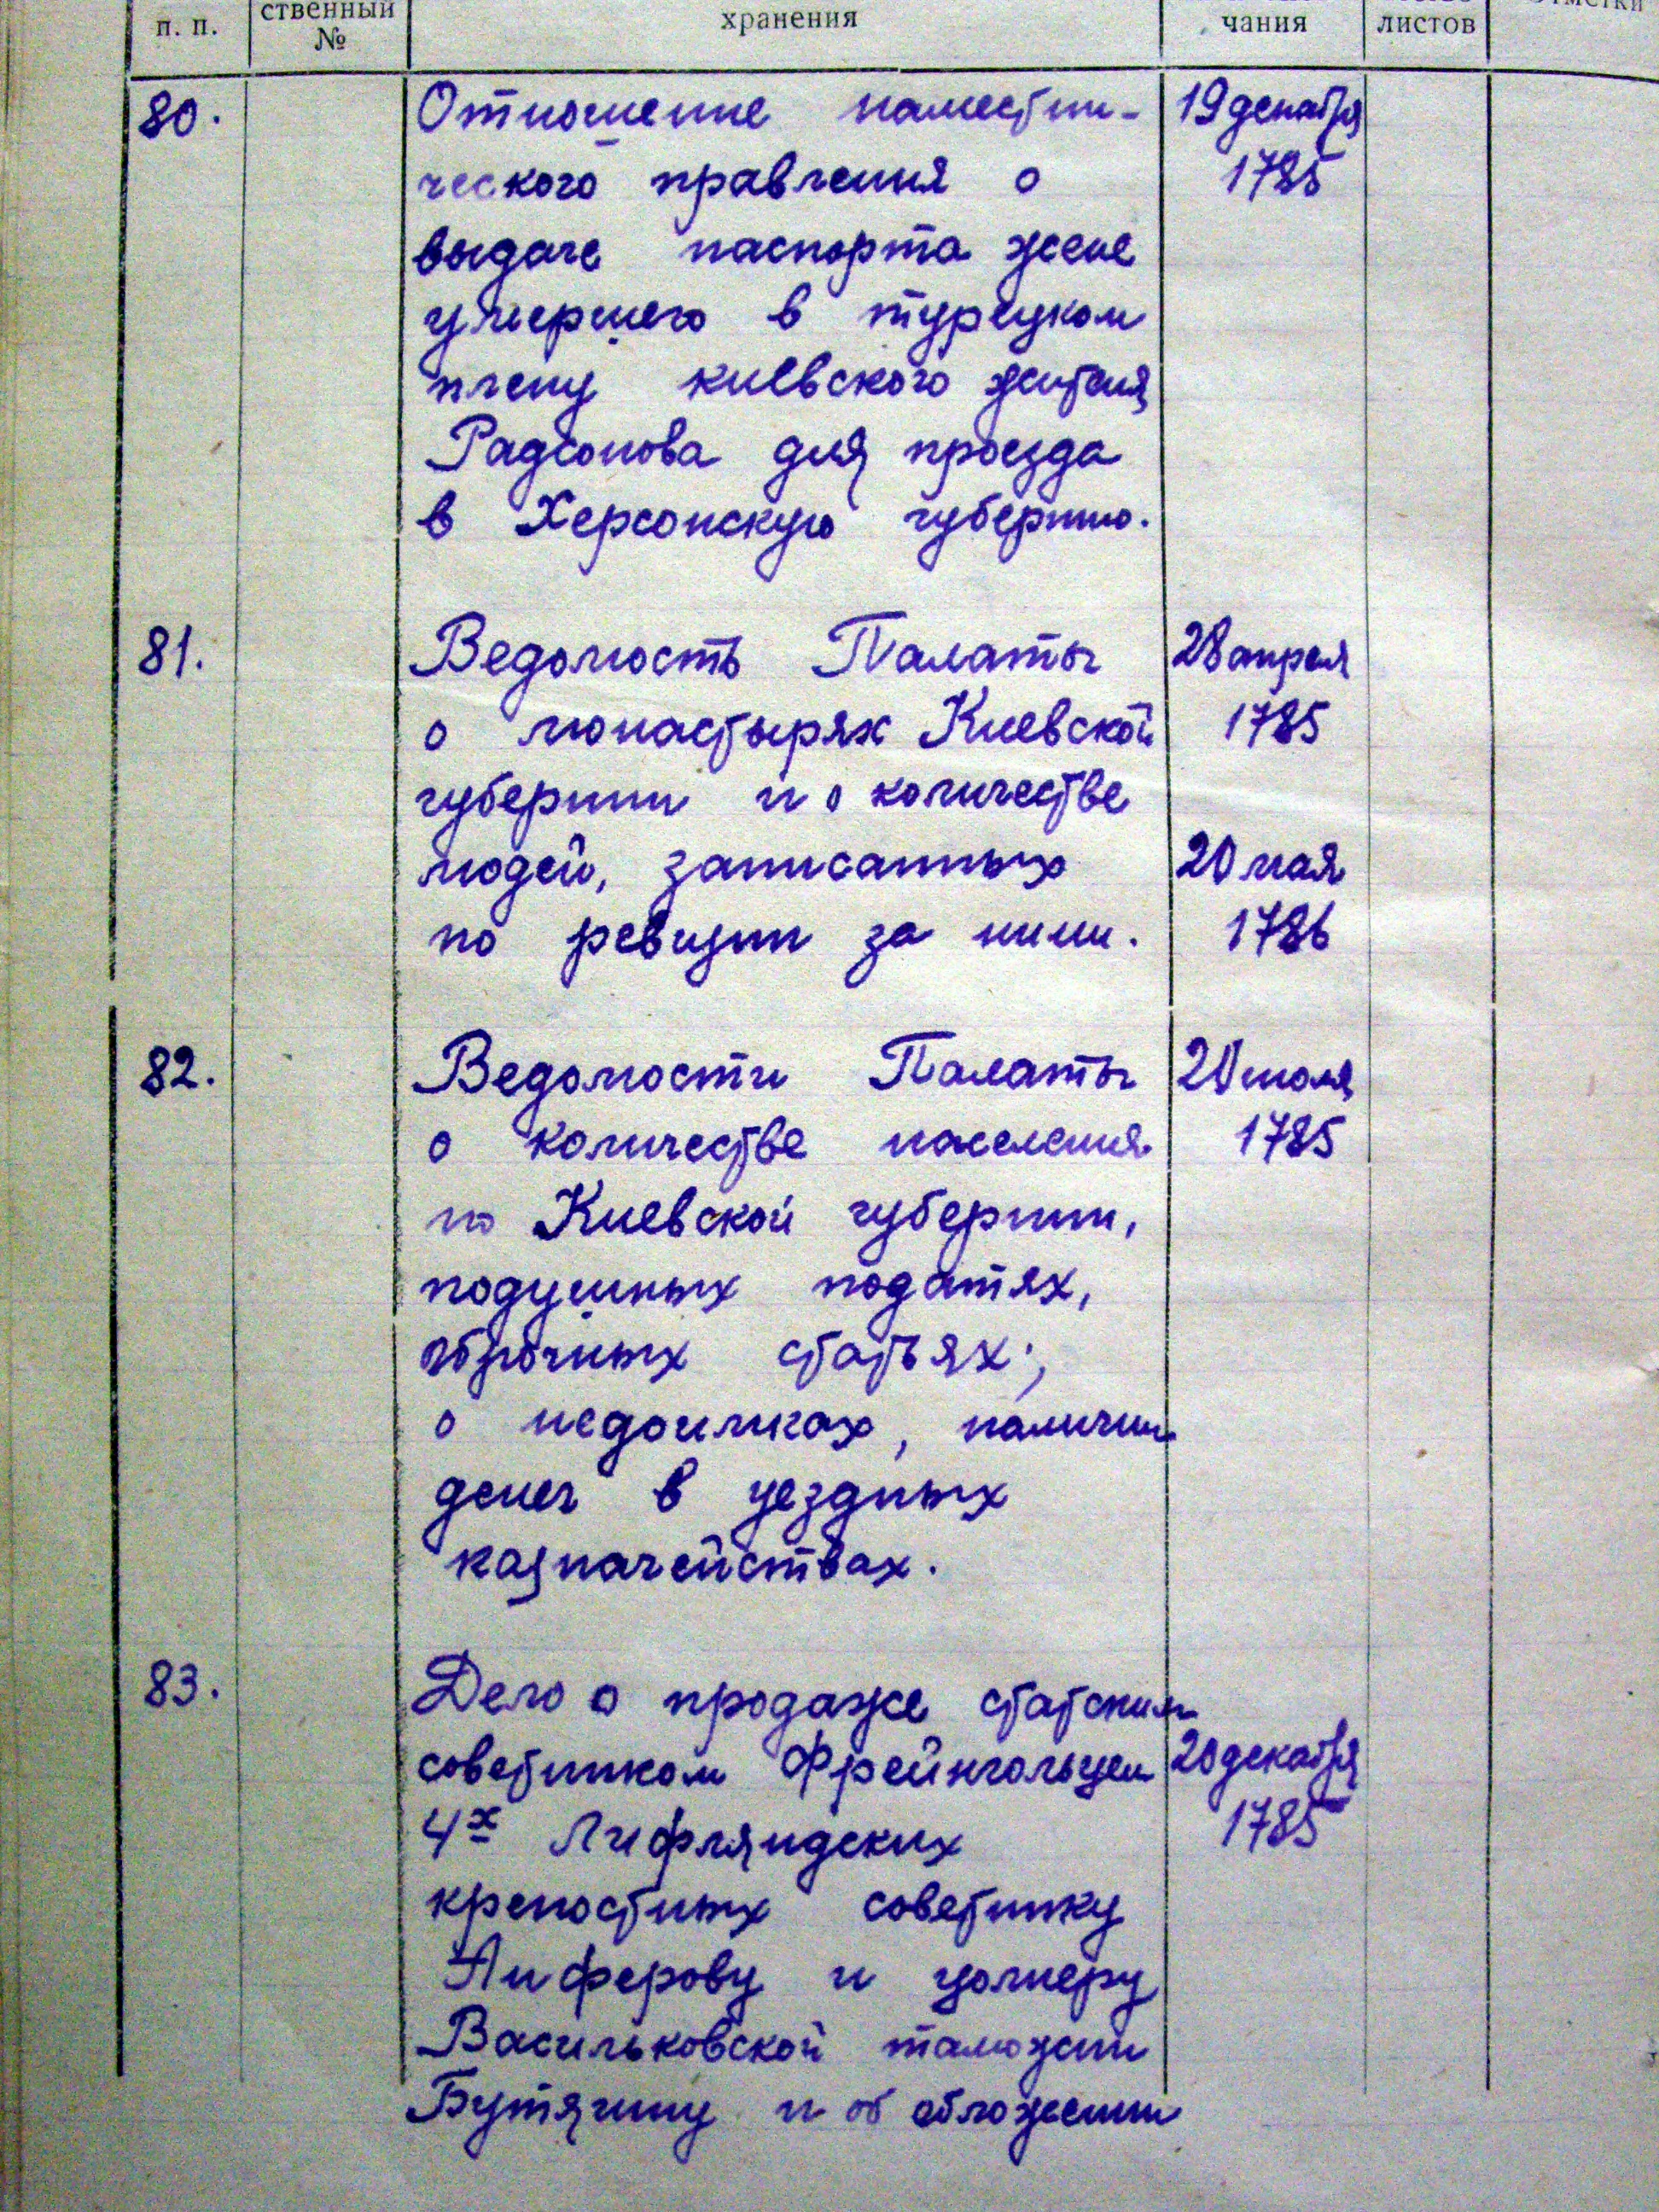 п. п.
ственный
№
хранения
чания
листов
80.
Отношение наместни-
ческого правления о
выдаче паспорта жене
умершего в турецком
плену киевского жителя
Радионова для проезда
в Херсонскую губернию.
19 декабря
1785
81.
Ведомость Палаты
о монастырях Киевской
губернии и о количестве
людей, записанных
по ревизии за ними.
28 апреля
1785
20 мая
1786
82.
Ведомости Палаты
о количестве населения
по Киевской губернии,
подушных податях,
оброчных статьях;
о недоимках, наличии
денег в уездных
казначействах.
20 июля
1785
83.
Дело о продаже статским
советником Фрейнгольцем
4х Лифляндских
крепостных советнику
Алферову и цолнеру
Васильковской таможни
Бутягину и об обложении
20 декабря
1785